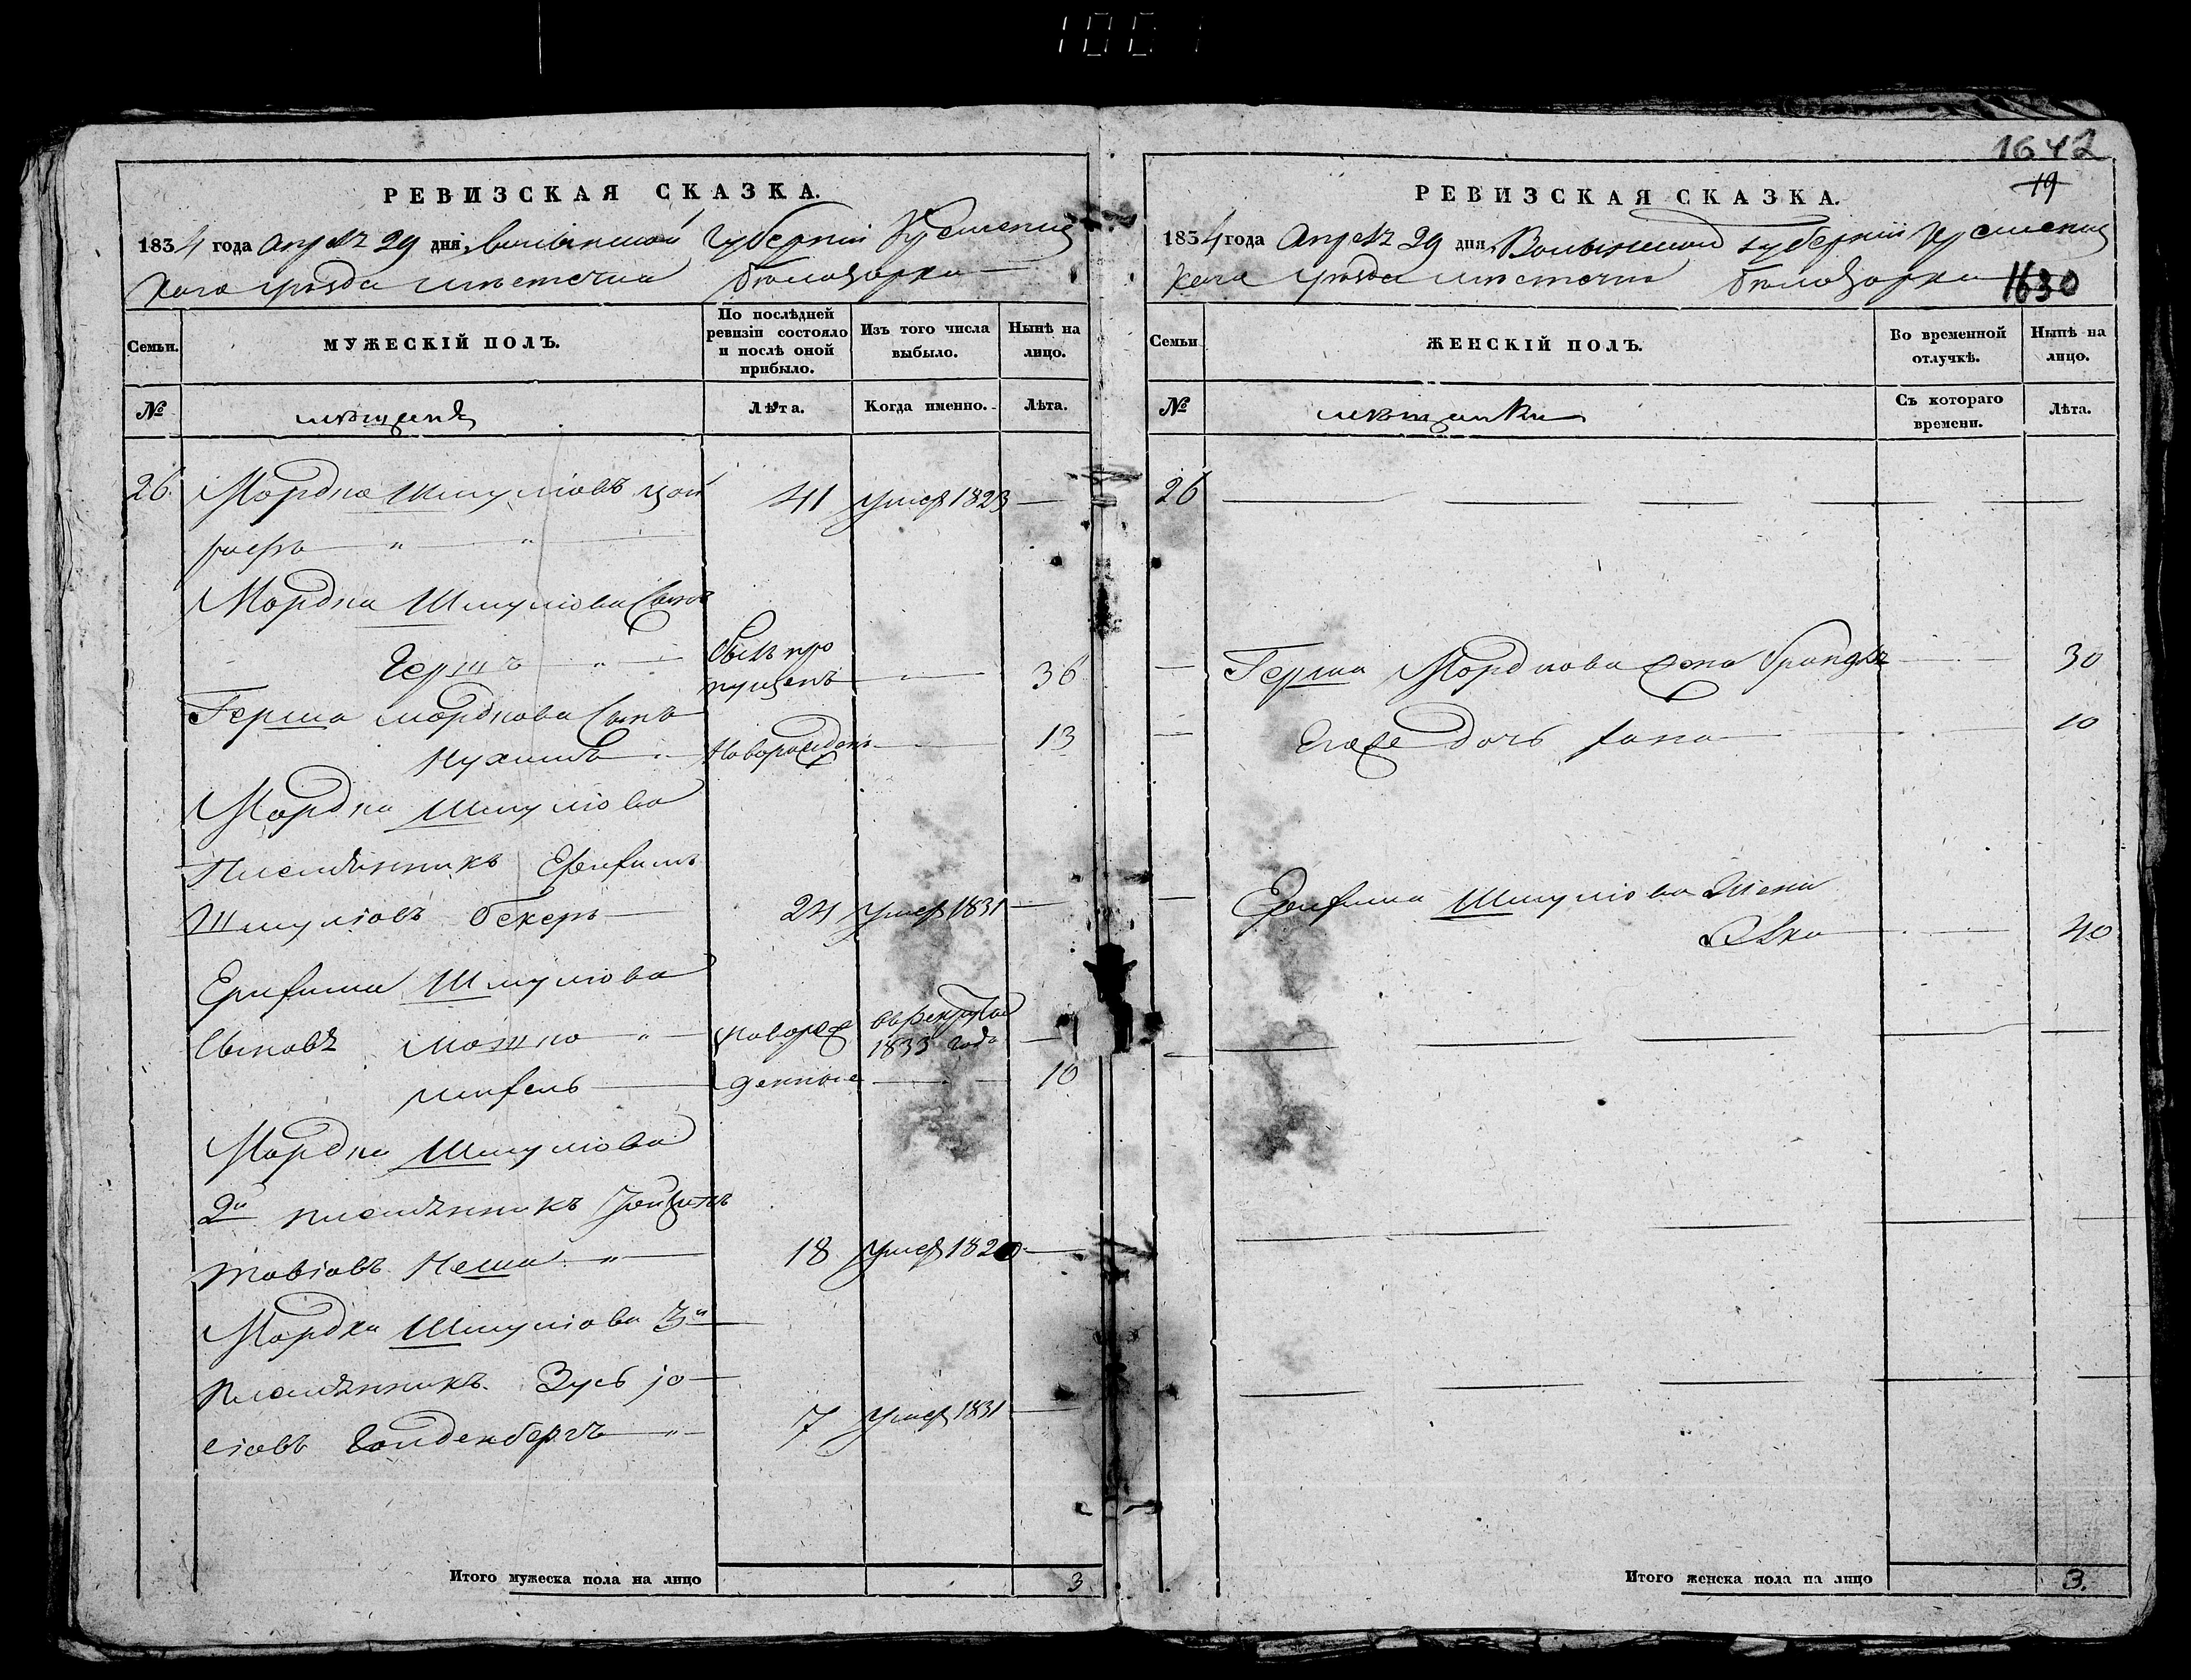 1001
1642
19
1630
РЕВИЗСКАЯ СКАЗКА.
1834 года Апреля 29 дня Волынской Губерніи Кременец
каго уѣзда местечка Белозорки
Семьи.
МУЖЕСКІЙ ПОЛЪ.
По послѣдней ревизіи состояло и послѣ оной прибыло.
Изъ того числа выбыло.
Нынѣ на лицо.
№
мещане
Лѣта.
Когда именно.
Лѣта.
26. Мордко Шмуліовъ 41 умер 1823
Мордка Шмуліова Сынъ
Гершъ былъ про
пущенъ 36
Герша Мордкова Сынъ
Нухимъ Новорожденъ 13
Мордка Шмуліова
Племянникъ
Шмуліовъ Бекеръ 24 умер 1831
Шмуліова
Сыновя Мошко новорож в рекруты
1833 года
денные 10
Мордка Шмуліова
2й племянникъ
товіовъ 18 умер 1820
Мордка Шмуліова 3й
Племянникъ Зусь јо
сіовъ Гольденбергъ 7 умер 1831
Итого мужеска пола на лицо 3
РЕВИЗСКАЯ СКАЗКА.
1834 года Апреля 29 дня Волынской губерніи Кременец
каго уѣзда местечка Белозорки
Семьи
ЖЕНСКІЙ ПОЛЪ.
Во временной отлучкѣ.
Нынѣ на лицо.
№
мещанки
Съ котораго времени.
Лѣта.
26
Герша Мордкова жена 30
дочь 10
Шмуліова жена
40
Итого женска пола на лицо 3.